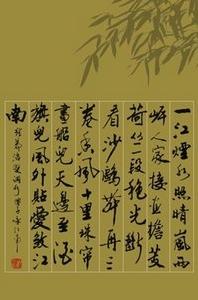 一江煙水照晴嵐兩
岸人家接畫檐芰
荷叢一段秋光淡
看沙鷗舞再三
卷香風十里珠帘
畫船兒天邊至酒
旗兒風外颭愛煞江
南